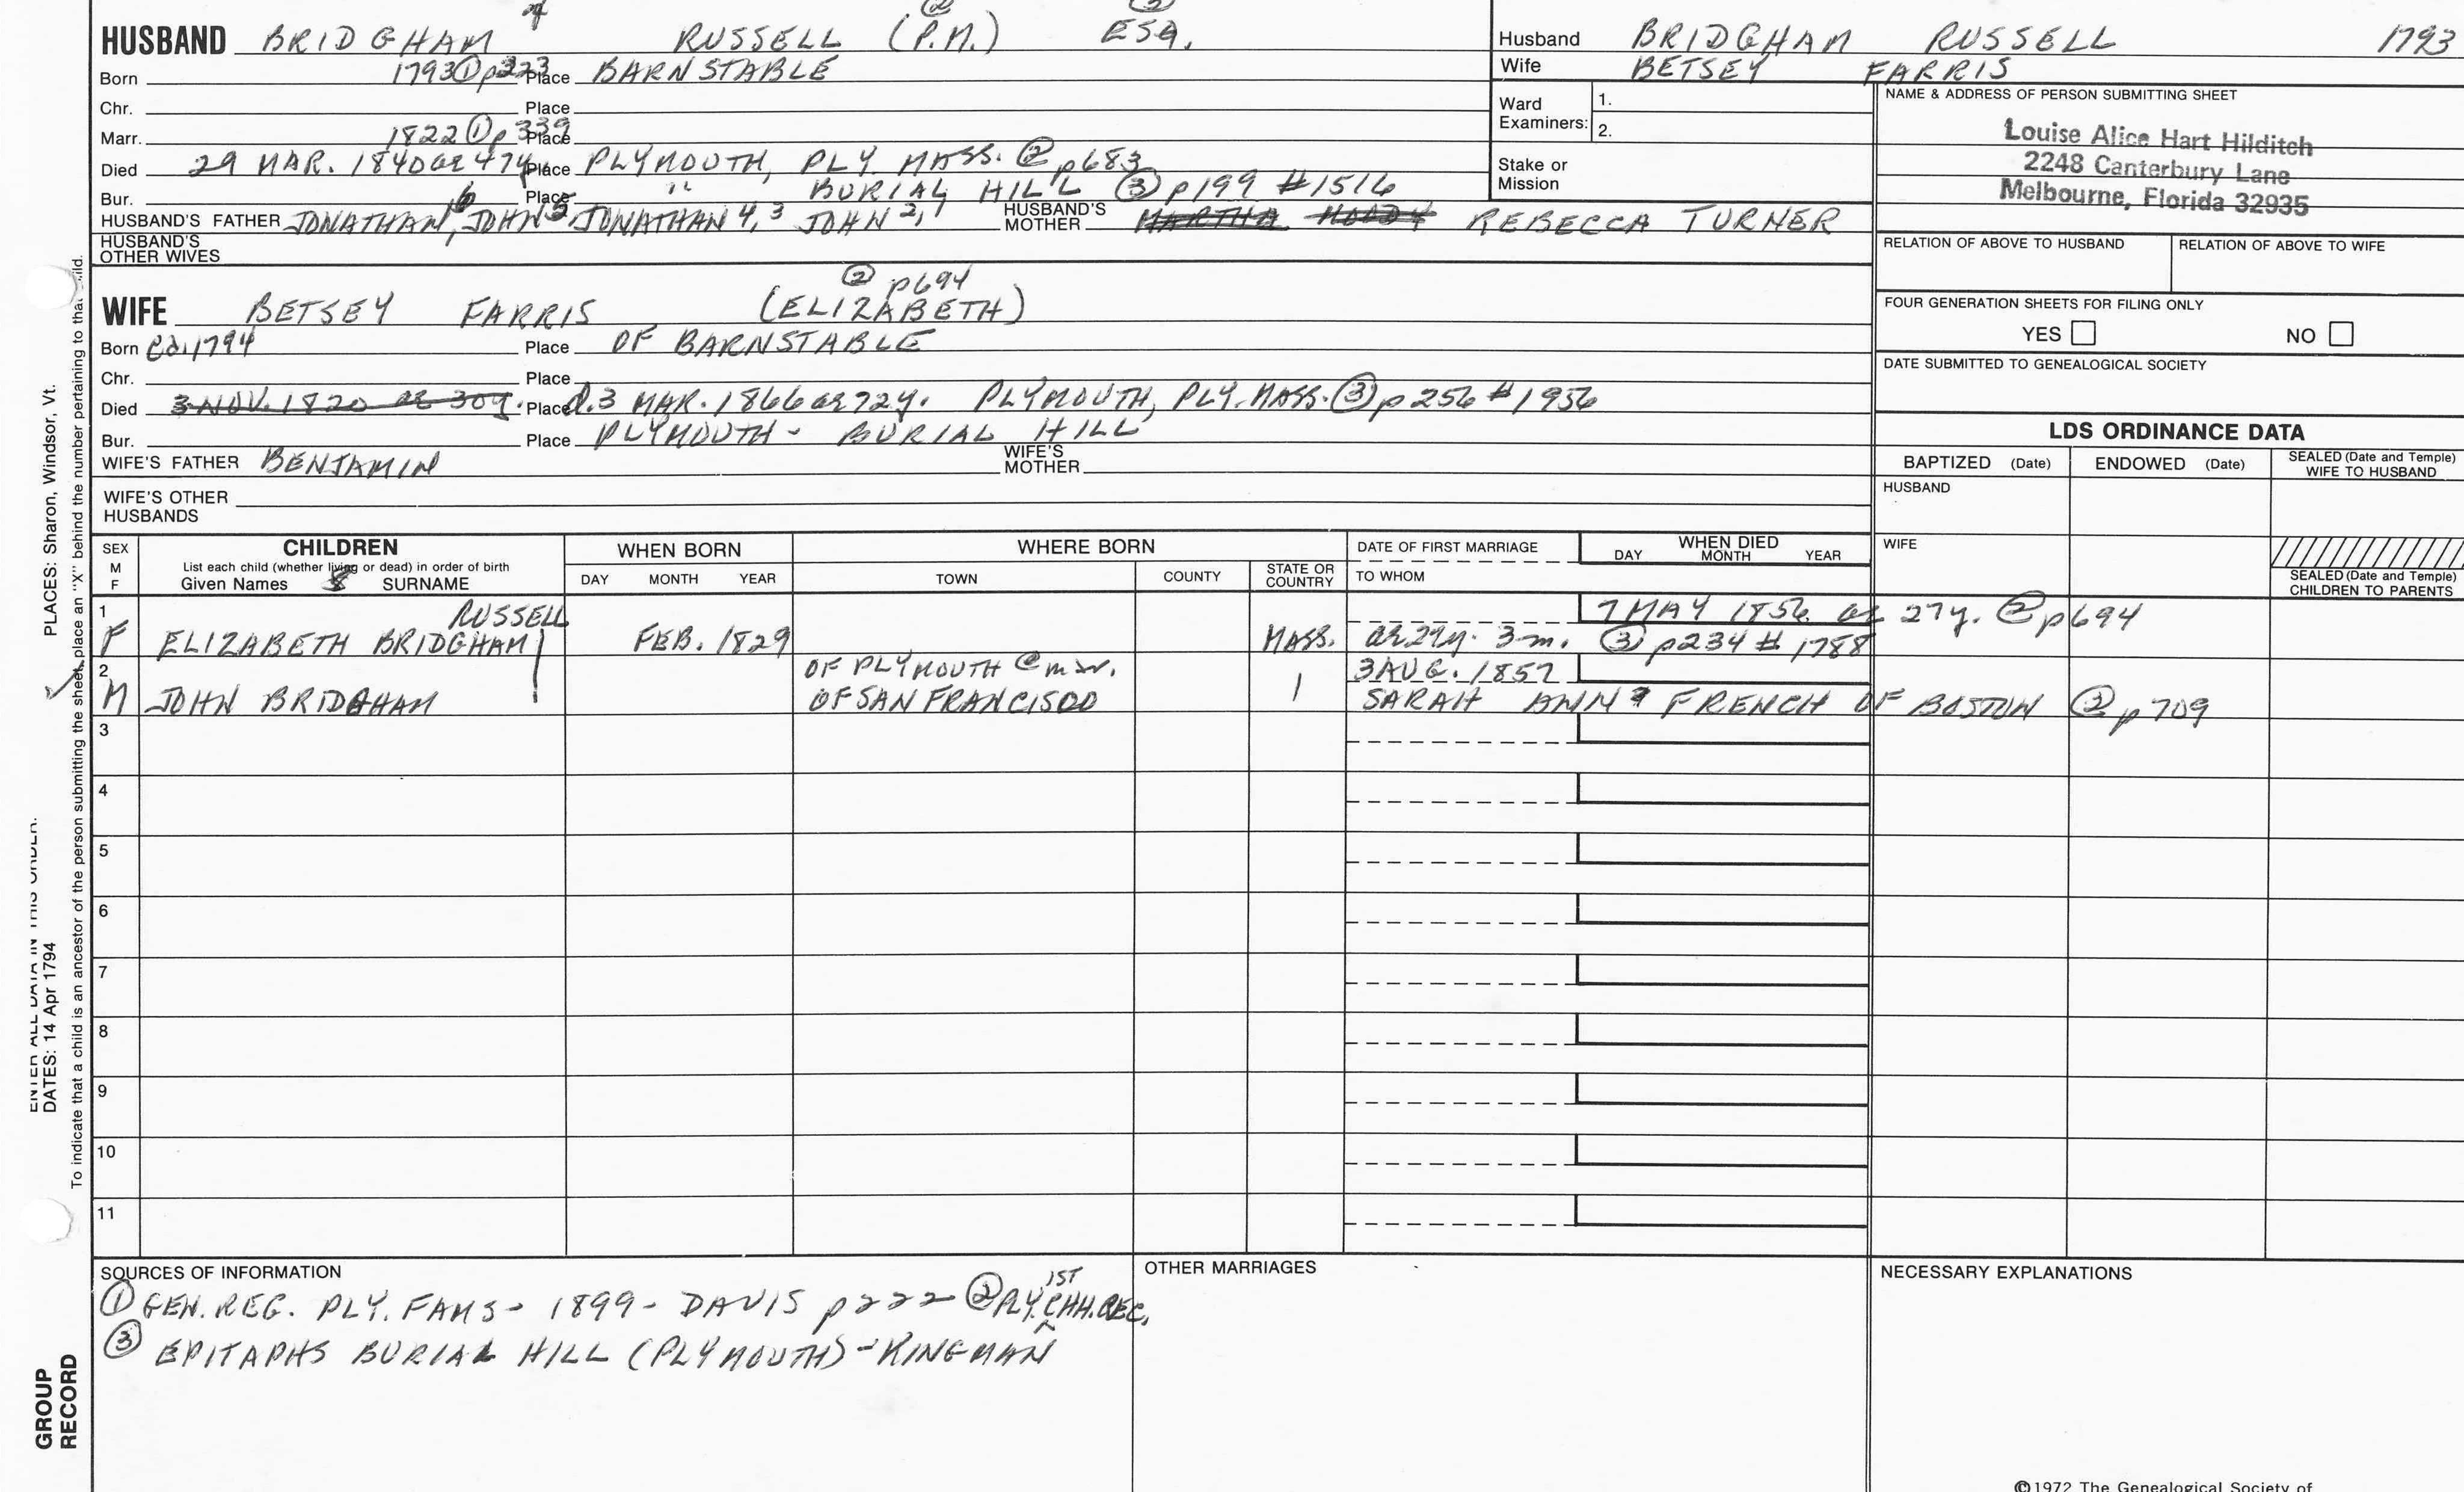 ② ③
HUSBAND BRIDGHAM RUSSELL (P.M.) ESQ.
Born 1793 ① p223 Place BARNSTABLE
Chr. Place
Marr. 1822 ① p339 Place
Died 29 MAR. 1840 ae 47y. Place PLYMOUTH, PLY. MASS. ② p683
Bur. Place " BURIAL HILL ③ p199 #1516
HUSBAND'S FATHER JONATHAN 6, JOHN 5, JONATHAN 4, 3 JOHN 2, 1 HUSBAND'S MOTHER MARTHA MOODY REBECCA TURNER
HUSBAND'S OTHER WIVES
② p694
WIFE BETSEY FARRIS (ELIZABETH)
Born ca. 1794 Place OF BARNSTABLE
Chr. Place
Died 3 NOV. 1820 ae 30y. Place d. 3 MAR. 1866 ae 72y. PLYMOUTH, PLY. MASS. ③ p256 #1956
Bur. Place PLYMOUTH - BURIAL HILL
WIFE'S FATHER BENJAMIN WIFE'S MOTHER
WIFE'S OTHER HUSBANDS
Husband BRIDGHAM RUSSELL 1793
Wife BETSEY FARRIS
Ward Examiners: 1.
2.
Stake or Mission
NAME & ADDRESS OF PERSON SUBMITTING SHEET
Louise Alice Hart Hilditch
2248 Canterbury Lane
Melbourne, Florida 32935
RELATION OF ABOVE TO HUSBAND RELATION OF ABOVE TO WIFE
FOUR GENERATION SHEETS FOR FILING ONLY
YES NO
DATE SUBMITTED TO GENEALOGICAL SOCIETY
LDS ORDINANCE DATA
BAPTIZED (Date) ENDOWED (Date) SEALED (Date and Temple) WIFE TO HUSBAND
HUSBAND
WIFE
SEALED (Date and Temple) CHILDREN TO PARENTS
SEX M F
CHILDREN
List each child (whether living or dead) in order of birth
Given Names 8 SURNAME
WHEN BORN
DAY MONTH YEAR
WHERE BORN
TOWN COUNTY STATE OR COUNTRY
DATE OF FIRST MARRIAGE
TO WHOM
WHEN DIED
DAY MONTH YEAR
1 RUSSELL 7 MAY 1856 ae 27y. ② p694
F ELIZABETH BRIDGHAM FEB. 1829 MASS. ae 27y. 3 m. ③ p234 # 1788
2 OF PLYMOUTH @ m 3 AUG. 1857
M JOHN BRIDGHAM OF SAN FRANCISCO SARAH ANN FRENCH OF BOSTON ② p709
3
4
5
6
7
8
9
10
11
SOURCES OF INFORMATION
① GEN. REG. PLY. FAMS - 1899 - DAVIS p222 ② PLY. 1ST CHH. REC.
③ EPITAPHS BURIAL HILL (PLYMOUTH) - KINGMAN
OTHER MARRIAGES
NECESSARY EXPLANATIONS
©1972 The Genealogical Society of
PLACES: Sharon, Windsor, Vt.
ENTER ALL DATA IN THIS ORDER:
DATES: 14 Apr 1794
To indicate that a child is an ancestor of the person submitting the sheet, place an "X" behind the number pertaining to that child.
GROUP RECORD